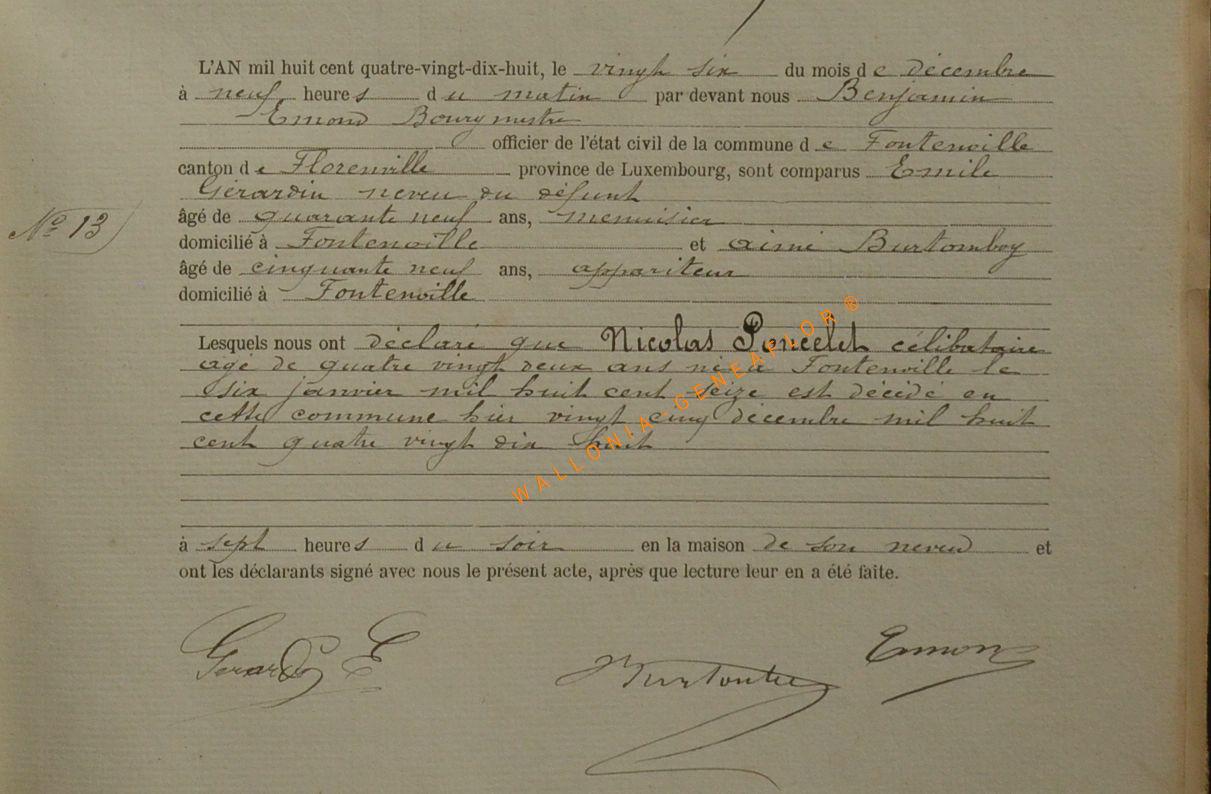 L'AN mil huit cent quatre-vingt-dix-huit, le vingt six du mois de décembre
à neuf heures du matin par devant nous Benjamin
Emond Bourgmestre
officier de l'état civil de la commune de Fontenoille
canton de Florenville province de Luxembourg, sont comparus Emile
Gérardin neveu du défunt
âgé de quarante neuf ans, menuisier
No 13
domicilié à Fontenoille et aimé
âgé de cinquante neuf ans, appariteur
domicilié à Fontenoille
Lesquels nous ont déclaré que Nicolas Poncelet célibataire
agé de quatre vingt deux ans né à Fontenoille le
six janvier mil huit cent seize est décédé en
cette commune hier vingt cinq décembre mil huit
cent quatre vingt dix huit
WALLONIA-GENEAFLOR®
à sept heures du soir en la maison de son neveu et
ont les déclarants signé avec nous le présent acte, après que lecture leur en a été faite.
Gerardin E
Emond